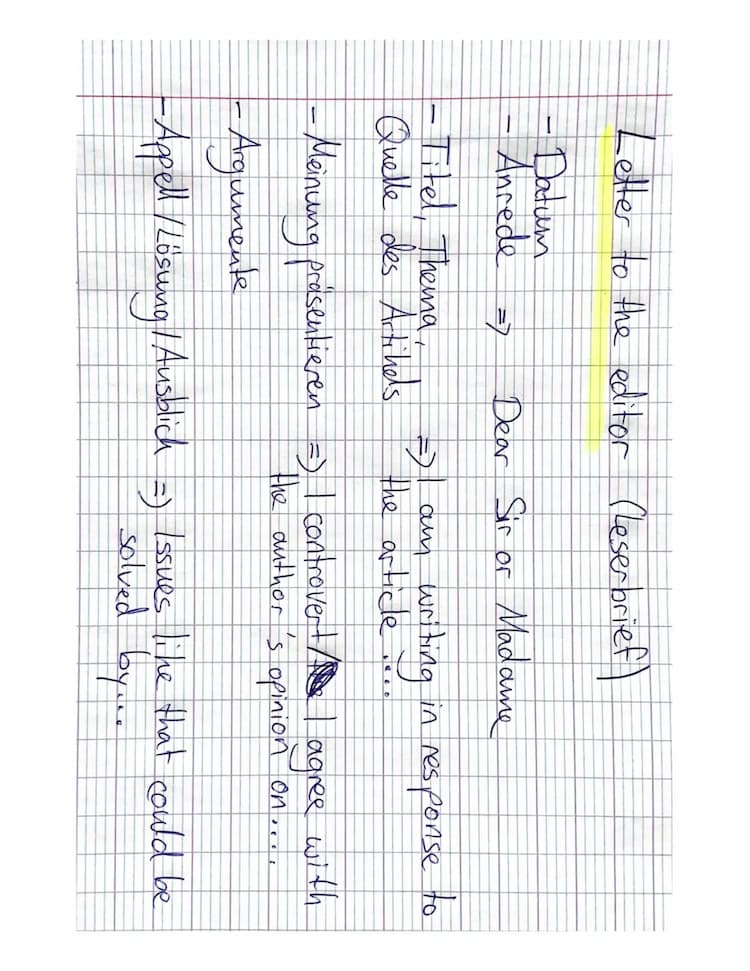 Letter to the editor (Leserbrief)
- Datum
- Anrede => Dear Sir or Madame
- Titel, Thema,
Quelle des Artikels => I am writing in response to
the article ....
- Meinung präsentieren => I controvert / I agree with
the author's opinion on....
- Argumente
- Appell/Lösung/Ausblick => Issues like that could be
solved by....